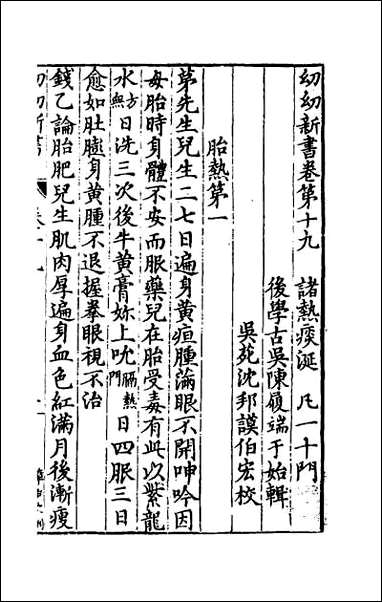 幼幼新書卷第十九　諸熱痰涎　凡一十門
後學古吳陳履端于始輯
吳苑沈邦謨伯宏校
胎熱第一
茅先生兒生二七日遍身黃疸腫滿眼不開呻吟因
母胎時身體不安而服藥兒在胎受毒有此以紫龍
水方無日洗三次後牛黃膏妳上吮膈熱門日四服三日
愈如肚膨身黃腫不退握拳眼視不治
錢乙論胎肥兒生肌肉厚遍身血色紅滿月後漸瘦
幼幼新書　卷十九　一